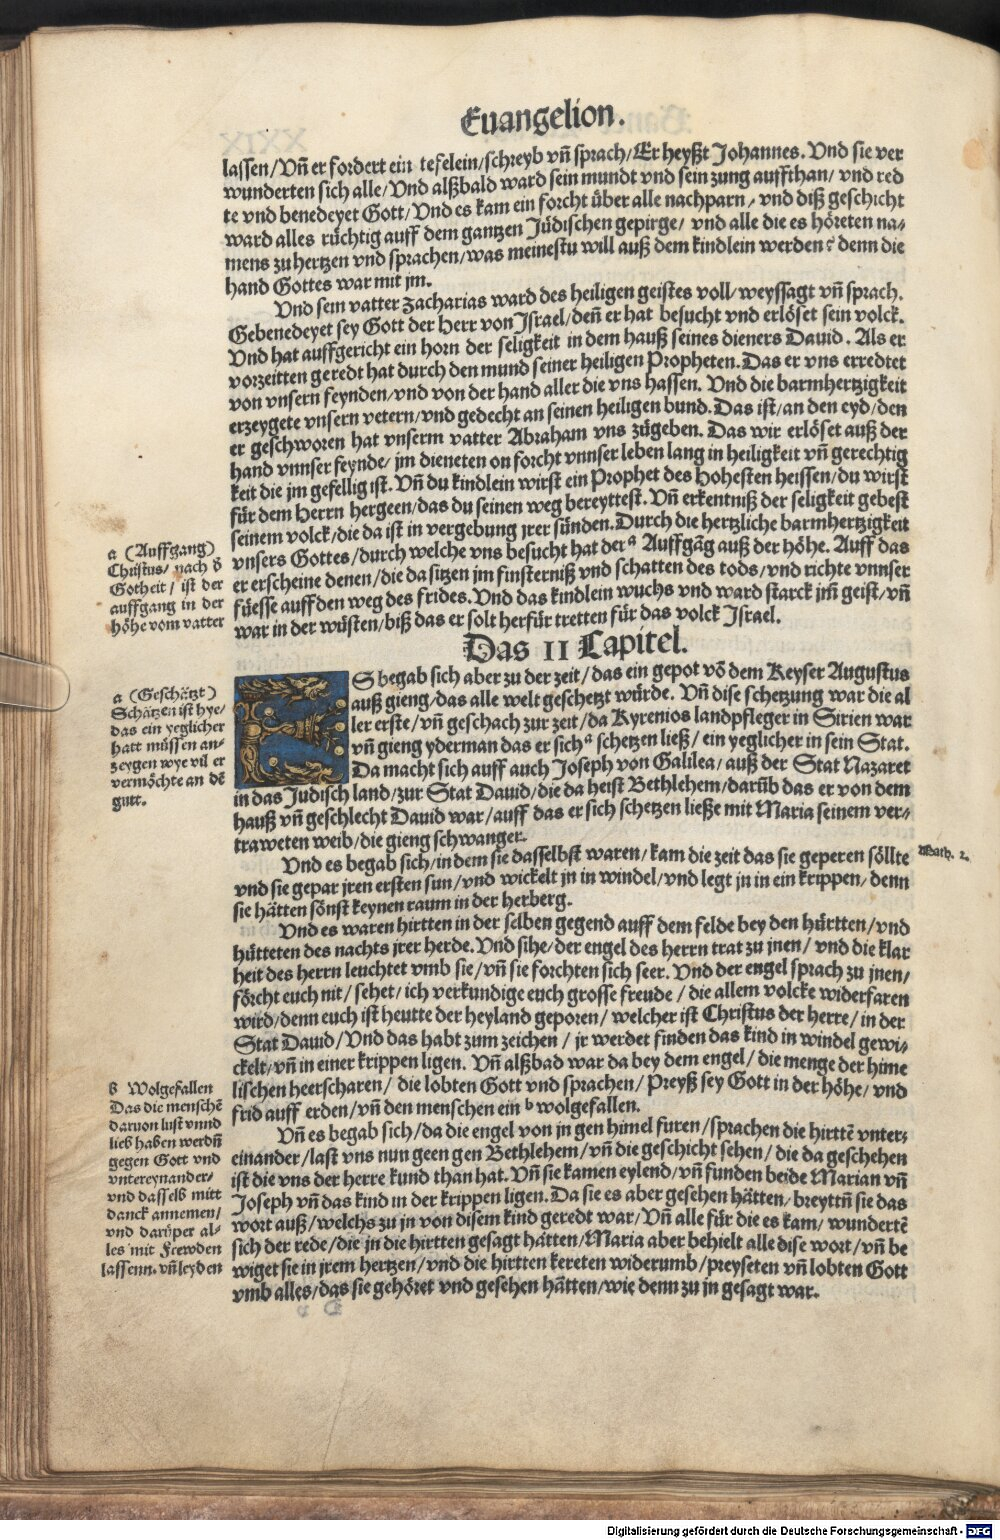 Euangelion.
lassen/Vñ er fordert ein tefelein/schreyb vñ sprach/Er heyßt Johannes. Vnd sie ver
wunderten sich alle/Vnd alßbald ward sein mundt vnd sein zung auffthan/vnd red
te vnd benedeyet Gott/Vnd es kam ein forcht über alle nachparn/vnd diß geschicht
ward alles rüchtig auff dem gantzen Jüdischen gepirge/vnd alle die es höreten na-
mens zu hertzen vnd sprachen/was meinestu will auß dem kindlein werden? denn die
hand Gottes war mit jm.
Vnd sein vatter Zacharias ward des heiligen geistes voll/weyssagt vñ sprach.
Gebenedeyet sey Gott der Herr von Israel/deñ er hat besucht vnd erlöset sein volck.
Vnd hat auffgericht ein horn der seligkeit in dem hauß seines dieners Dauid. Als er
vorzeitten geredt hat durch den mund seiner heiligen Propheten. Das er vns erredtet
von vnsern feynden/vnd von der hand aller die vns hassen. Vnd die barmhertzigkeit
erzeygete vnsern vetern/vnd gedecht an seinen heiligen bund. Das ist/an den eyd/den
er geschworen hat vnserm vatter Abraham vns zügeben. Das wir erlöset auß der
hand vnnser feynde/jm dieneten on forcht vnnser leben lang in heiligkeit vñ gerechtig
keit die jm gefellig ist. Vñ du kindlein wirst ein Prophet des Hohesten heissen/du wirst
für dem Herrn hergeen/das du seinen weg bereyttest. Vñ erkentniß der seligkeit gebest
seinem volck/die da ist in vergebung jrer sünden. Durch die hertzliche barmhertzigkeit
vnsers Gottes/durch welche vns besucht hat der a Auffgãg auß der höhe. Auff das
er erscheine denen/die da sitzen jm finsterniß vnd schatten des tods/vnd richte vnnser
füesse auff den weg des frides. Vnd das kindlein wuchs vnd ward starck jm̃ geist/vñ
war in der wüsten/biß das er solt herfür tretten für das volck Israel.
a (Auffgang)
Christus/nach d̕
Gotheit/ist der
auffgang in der
höhe vom vatter
Das II Capitel.
ES begab sich aber zu der zeit/das ein gepot võ dem Keyser Augustus
auß gieng/das alle welt geschetzt würde. Vñ dise schetzung war die al
ler erste/vñ geschach zur zeit/da Kyrenios landpfleger in Sirien war
vñ gieng yderman das er sich a schetzen ließ/ein yeglicher in sein Stat.
Da macht sich auff auch Joseph von Galilea/auß der Stat Nazaret
in das Judisch land/zur Stat Dauid/die da heist Bethlehem/darüb das er von dem
hauß vñ geschlecht Dauid war/auff das er sich schetzen ließe mit Maria seinem ver-
traweten weib/die gieng schwanger.
a (Geschätzt)
Schätzen ist hye/
das ein yeglicher
hatt müssen an-
zeygen wye vil er
vermöchte an dẽ
gutt.
Vnd es begab sich/in dem sie dasselbst waren/kam die zeit das sie geperen söllte
vnd sie gepar jren ersten sun/vnd wickelt jn in windel/vnd legt jn in ein krippen/denn
sie hätten sönst keynen raum in der herberg.
Math. 2.
Vnd es waren hirtten in der selben gegend auff dem felde bey den hürtten/vnd
hütteten des nachts jrer herde. Vnd sihe/der engel des herrn trat zu jnen/vnd die klar
heit des herrn leuchtet vmb sie/vñ sie forchten sich seer. Vnd der engel sprach zu jnen/
förcht euch nit/sehet/ich verkundige euch grosse freude/die allem volcke widerfaren
wird/denn euch ist heutte der heyland geporen/welcher ist Christus der herre/in der
Stat Dauid/Vnd das habt zum zeichen/jr werdet finden das kind in windel gewi-
ckelt/vñ in einer krippen ligen. Vñ alßbad war da bey dem engel/die menge der hime
lischen heerscharen/die lobten Gott vnd sprachen/Preyß sey Gott in der höhe/vnd
frid auff erden/vñ den menschen ein b wolgefallen.
Vñ es begab sich/da die engel von jn gen himel furen/sprachen die hirttẽ vnter-
einander/last vns nun geen gen Bethlehem/vñ die geschicht sehen/die da geschehen
ist die vns der herre kund than hat. Vñ sie kamen eylend/vñ funden beide Marian vñ
Joseph vñ das kind in der krippen ligen. Da sie es aber gesehen hätten/breyttñ sie das
wort auß/welchs zu jn von disem kind geredt war/Vñ alle für die es kam/wundertẽ
sich der rede/die jn die hirtten gesagt hatten/Maria aber behielt alle dise wort/vñ be
wiget sie in jrem hertzen/vnd die hirtten kereten widerumb/preyseten vñ lobten Gott
vmb alles/das sie gehöret vnd gesehen hätten/wie denn zu jn gesagt war.
b Wolgefallen
Das die menschẽ
daruon lust vnnd
lieb haben werdñ
gegen Gott vnd
vntereynander-
vnd dasselb mitt
danck annemen/
vnd darüper al-
les mit Frewden
lassenn. vñ leyden
Digitalisierung gefördert durch die Deutsche Forschungsgemeinschaft - DFG